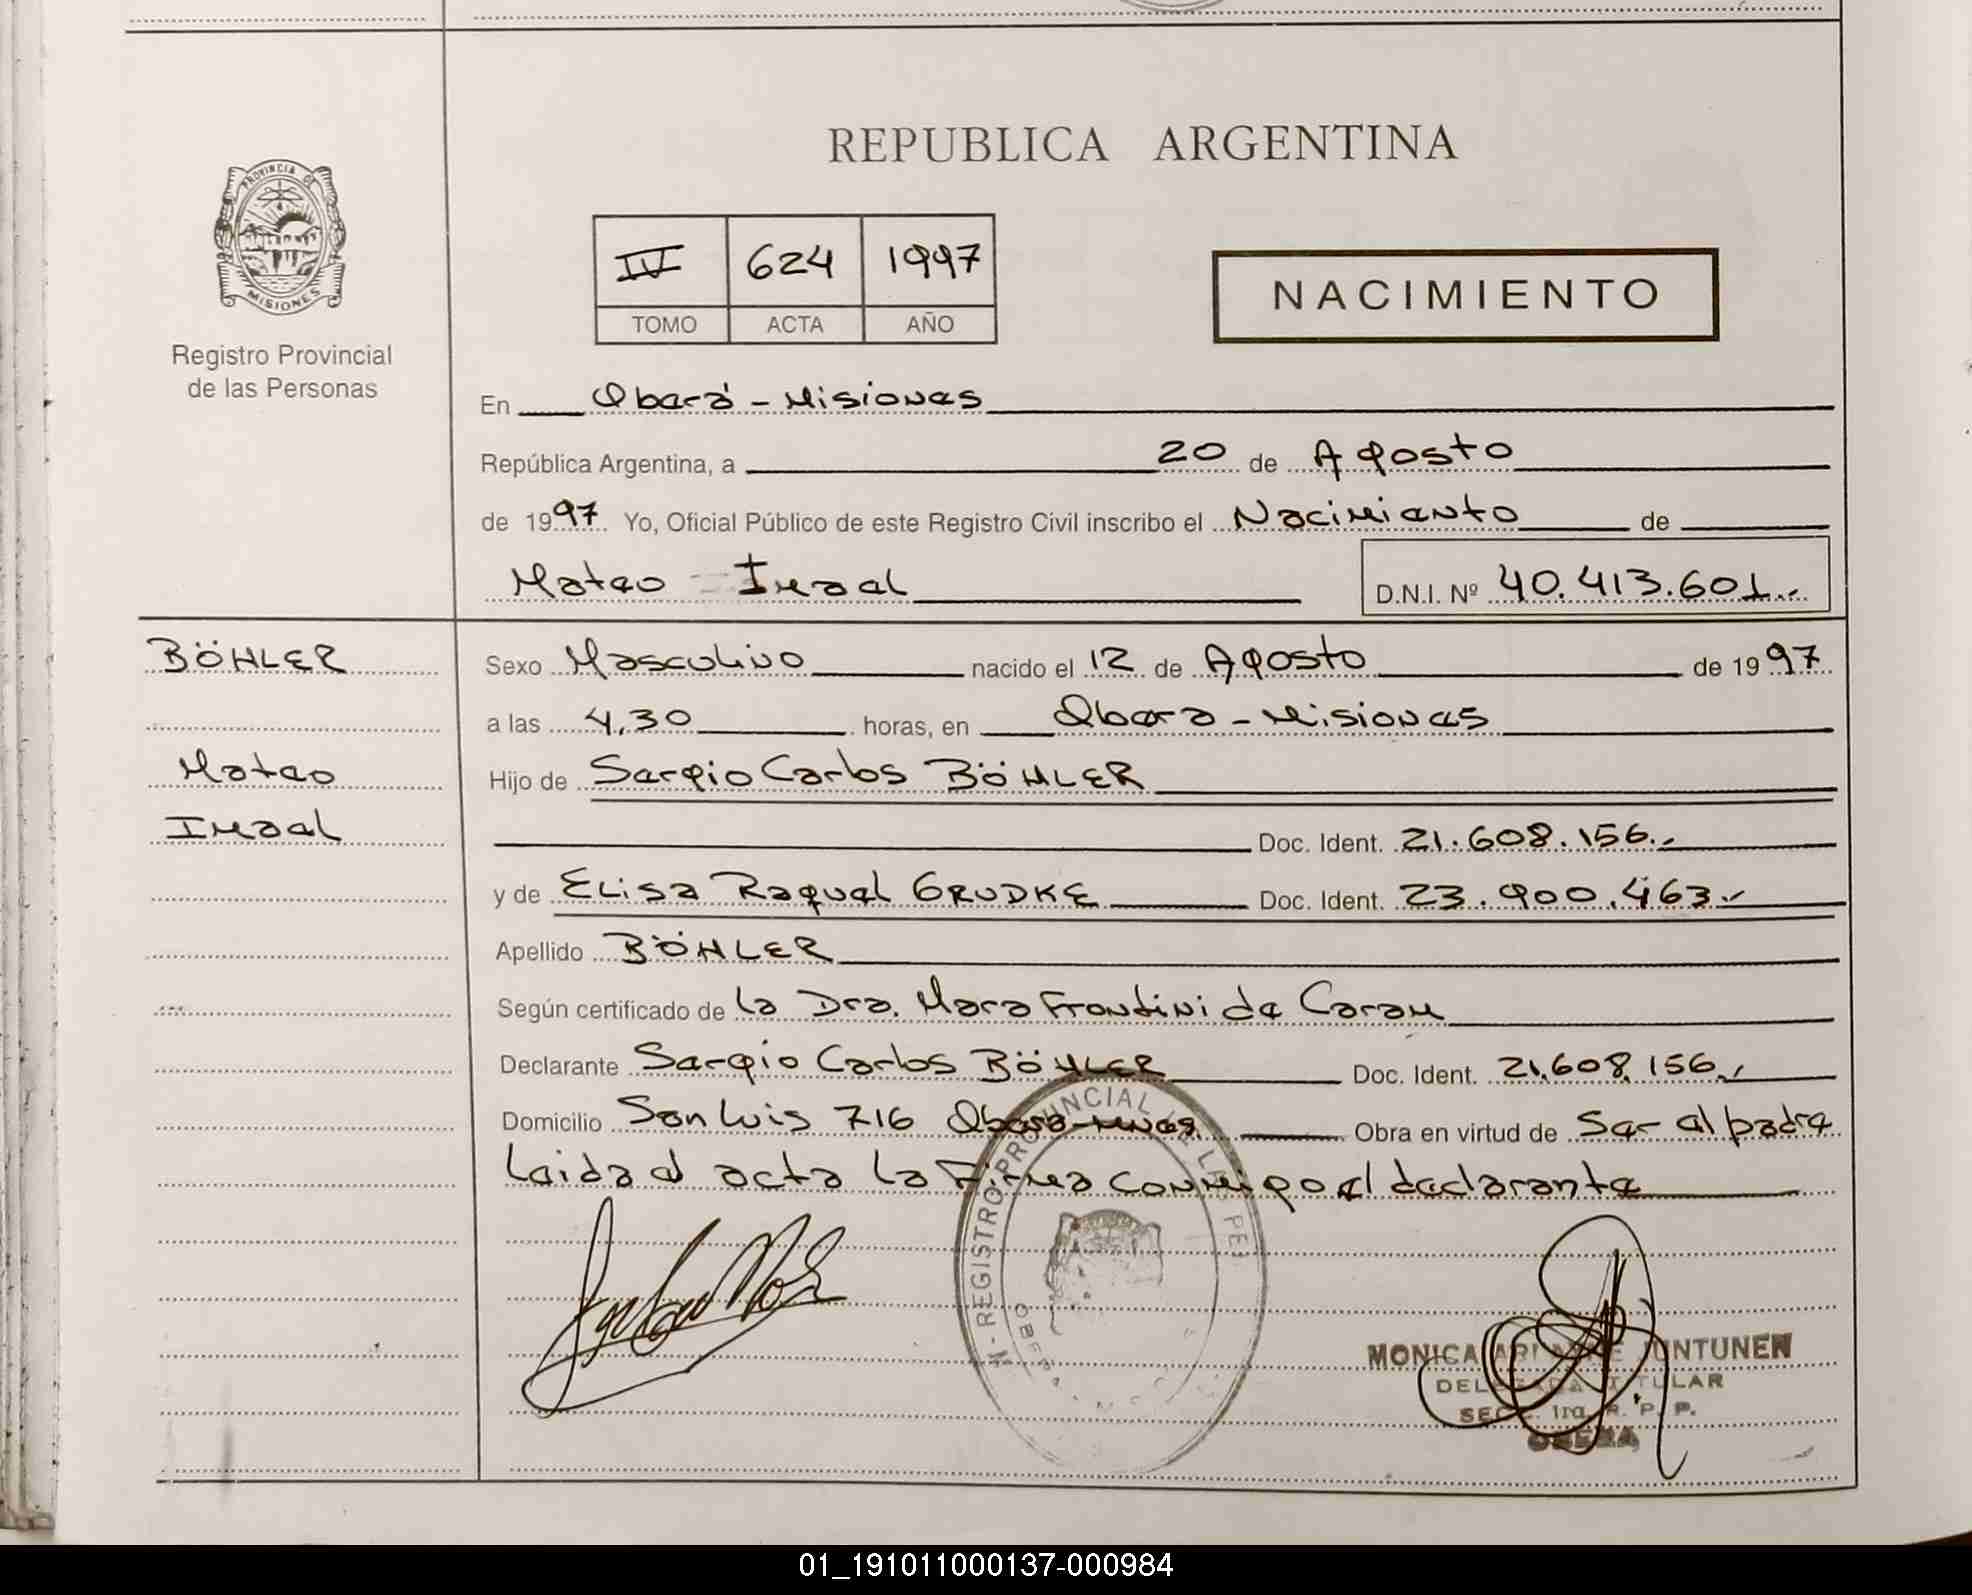 PROVINCIA DE
MISIONES
Registro Provincial
de las Personas
REPUBLICA ARGENTINA
IV 624 1997
TOMO ACTA AÑO
NACIMIENTO
En Oberá - Misiones
República Argentina, a 20 de Agosto
de 1997. Yo, Oficial Público de este Registro Civil inscribo el Nacimiento de
Mateo Imael D.N.I. Nº 40.413.601.-
BÖHLER
Mateo
Imael
Sexo Masculino nacido el 12 de Agosto de 1997
a las 4,30 horas, en Oberá - Misiones
Hijo de Sergio Carlos BÖHLER
Doc. Ident. 21.608.156.-
y de Elisa Raquel GRUDKE Doc. Ident. 23.900.463.-
Apellido BÖHLER
Según certificado de la Dra. Mara Frontini de Caram
Declarante Sergio Carlos BÖHLER Doc. Ident. 21.608.156.-
Domicilio San Luis 716 Oberá-Mnes. Obra en virtud de Ser el padre
Leida el acta la firma conmigo el declarante
REGISTRO PROVINCIAL DE LAS PE
MONICA JUNTUNEN
DELEGADA TITULAR
SECC. 1ra. R. P. P.
OBERA
01_191011000137-000984